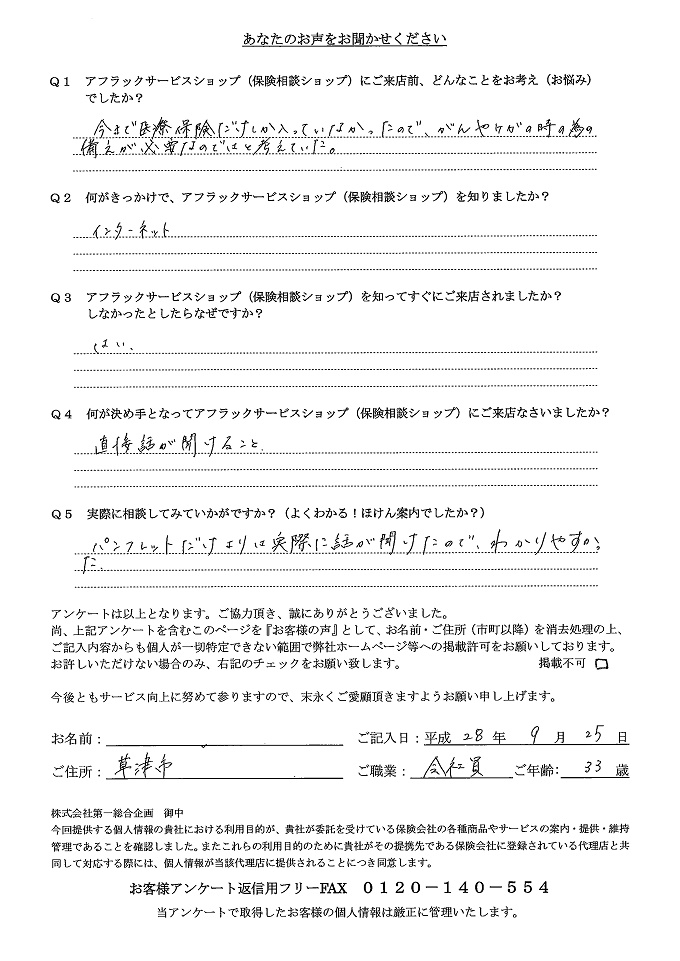 あなたのお声をお聞かせください
Q1 アフラックサービスショップ（保険相談ショップ）にご来店前、どんなことをお考え（お悩み）
でしたか？
今まで医療保険だけしか入っていなかったので、がんやケガの時の為の
備えが必要なのではと考えていた。
Q2 何がきっかけで、アフラックサービスショップ（保険相談ショップ）を知りましたか？
インターネット
Q3 アフラックサービスショップ（保険相談ショップ）を知ってすぐにご来店されましたか？
しなかったとしたらなぜですか？
はい、
Q4 何が決め手となってアフラックサービスショップ（保険相談ショップ）にご来店なさいましたか？
直接話が聞けること、
Q5 実際に相談してみていかがですか？（よくわかる！ほけん案内でしたか？）
パンフレットだけよりは実際に話が聞けたので、わかりやすかっ
た。
アンケートは以上となります。ご協力頂き、誠にありがとうございました。
尚、上記アンケートを含むこのページを『お客様の声』として、お名前・ご住所（市町以降）を消去処理の上、
ご記入内容からも個人が一切特定できない範囲で弊社ホームページ等への掲載許可をお願いしております。
お許しいただけない場合のみ、右記のチェックをお願い致します。 掲載不可 □
今後ともサービス向上に努めて参りますので、末永くご愛顧頂きますようお願い申し上げます。
お名前： ご記入日：平成 28 年 9 月 25 日
ご住所： 草津市 ご職業： 会社員 ご年齢： 33 歳
株式会社第一総合企画 御中
今回提供する個人情報の貴社における利用目的が、貴社が委託を受けている保険会社の各種商品やサービスの案内・提供・維持
管理であることを確認しました。またこれらの利用目的のために貴社がその提携先である保険会社に登録されている代理店と共
同して対応する際には、個人情報が当該代理店に提供されることにつき同意します。
お客様アンケート返信用フリーFAX 0120－140－554
当アンケートで取得したお客様の個人情報は厳正に管理いたします。